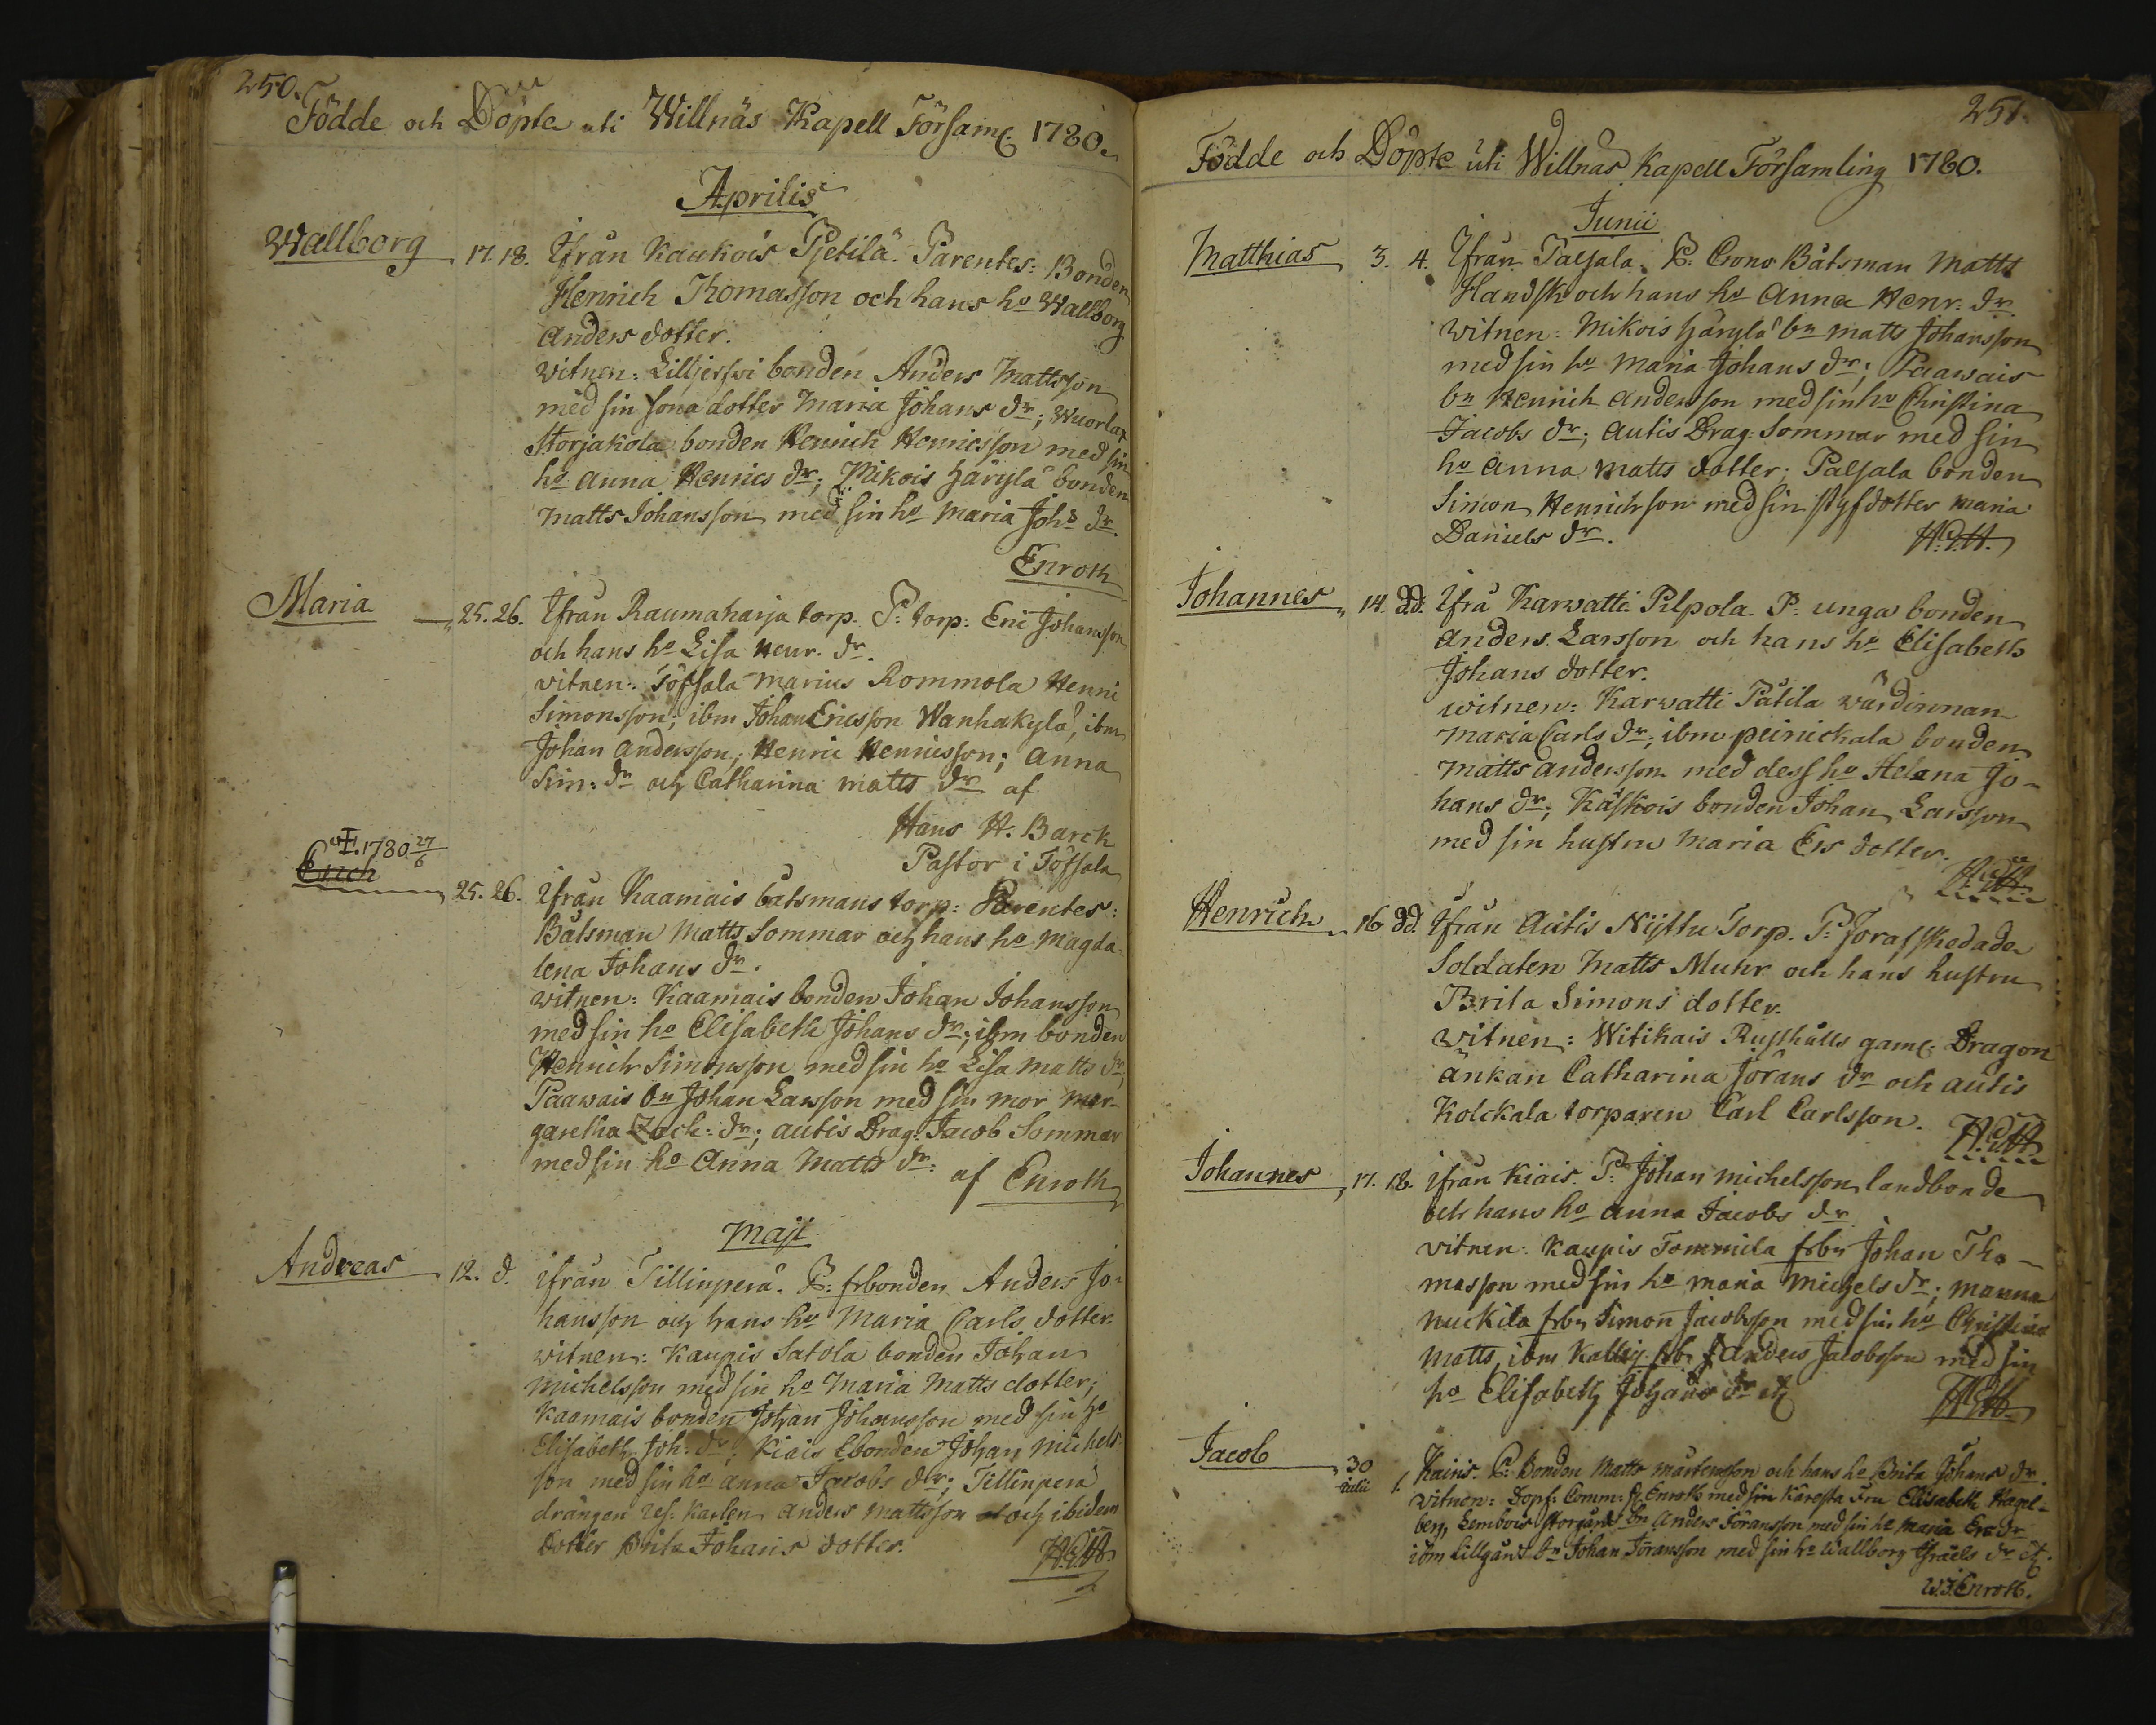 250.
Födde och Döpte uti Willnäs Kapell Församl. 1780.
Aprilis
Wallborg 17. 18. Ifrån Kaukois Pjetilä. Parentes: Bonden
Henrich Thomasson och hans ho Wallborg
Anders dotter.
Witnen: Bonden Anders Mattsson
med sin sona dotter Maria Johans dr; Wuorlax
Storjakola bonden Henrich Henricsson med sin
ho Anna Henrics dr; Mikois Häryla bonden
Matts Johansson med sin ho Maria Johs dr.
Enroth
Maria 25. 26. Ifrån Raumaharja torp. P: torp: Eric Johansson
och hans ho Lisa Henr. dr.
witnen: Töfsala Marius Rommola Henric
Simonsson; ibm Johan Ericsson Wanhakylä, ibm
Johan Andersson; Henric Henricsson; Anna
Sim: dr och Catharina Matts dr af
Hans H. Barck
Pastor i Töfsala
1780 27/6
Erich 25. 26. Ifrån Kaamais båtsmans torp: Parentes:
Båtsman Matts Sommar och hans ho Magda-
lena Johans dr.
witnen: Kaamais bonden Johan Johansson
med sin ho Elisabeth Johans dr; ibm bonden
Henrich Simonsson med sin ho Lisa Matts dr;
Paawais bn Johan Larsson med sin mor Mar-
garetha Zach: dr; Autis Drag: Jacob Sommar
med sin ho Anna Matts dr: af Enroth
Maji
Andreas 12. d. ifrån Tillinperä. P: frbonden Anders Jo-
hansson och hans ho Maria Carls dotter.
witnen: Kaupis Satola bonden Johan
Michelsson med sin ho Maria Matts dotter;
Kaamais bonden Johan Johansson med sin ho
Elisabeth Joh: dr; Kiais bonden Johan Michels-
son med sin ho Anna Jacobs dr; Tillinperä
drängen res: karlen Anders Mattsson och ibidem
dotter Brita Johans dotter.
251.
Födde och Döpte uti Willnäs Kapell Församling 1780.
Junii
Matthias 3. 4. Ifrån Palsala. P: Crono Båtsman Matts
Handsk och hans ho Anna Henr: dr.
witnen: Mikois Häryla bn Matts Johansson
med sin ho Maria Johans dr; Paawais
bn Henrich Andersson med sin ho Christina
Jacobs dr; Autis Drag: Sommar med sin
ho Anna Matts dotter; Palsala bonden
Simon Henrichson med sin styfdotter Maria
Daniels dr.
Johannes 14. dd. Ifrå Karvatti Pilpola. P: unga bonden
Anders Larsson och hans ho Elisabeth
Johans dotter.
witnen: Karvatti Pätila wärdinnan
Maria Carls dr; ibm peinickala bonden
Matts Andersson med dess ho Helena Jo-
hans dr; Käskois bonden Johan Larsson
med sin hustru Maria Ers dotter.
Henrich 16 dd. Ifrån Autis Nijttu Torp. P: Forafskedade
Soldaten Matts Muhr och hans hustru
Brita Simons dotter.
witnen: Witikais Rusthålls gaml: Dragon
änkan Catharina Jörans dr och Autis
Kolckala torparen Carl Carlsson.
Johannes 17. 18. ifrån Kiais. P: Johan Michelsson landbonde
och hans ho Anna Jacobs dr
vitnen: Kaupis Tommila frbn Johan Tho-
masson med sin ho Maria Michels dr; Manna
Nuckila frbn Simon Jacobsson med sin ho Christina
Matts, ibm frbn Anders Jacobsson med sin
ho Elisabeth Johans dr etc
Jacob 30 / Julii 1. Kairis. P: Bonden Matts Mårtensson och hans ho Brita Johans dr.
vitnen: Comm: Enroth med sin Käresta Fru Elisabeth Hagel-
berg, Lembois Storgårds bn Anders Jöransson med sin ho Maria Ers dr
ibm Lillgårds bn Johan Jöransson med sin ho Wallborg Israels dr etc.
W. J. Enroth.